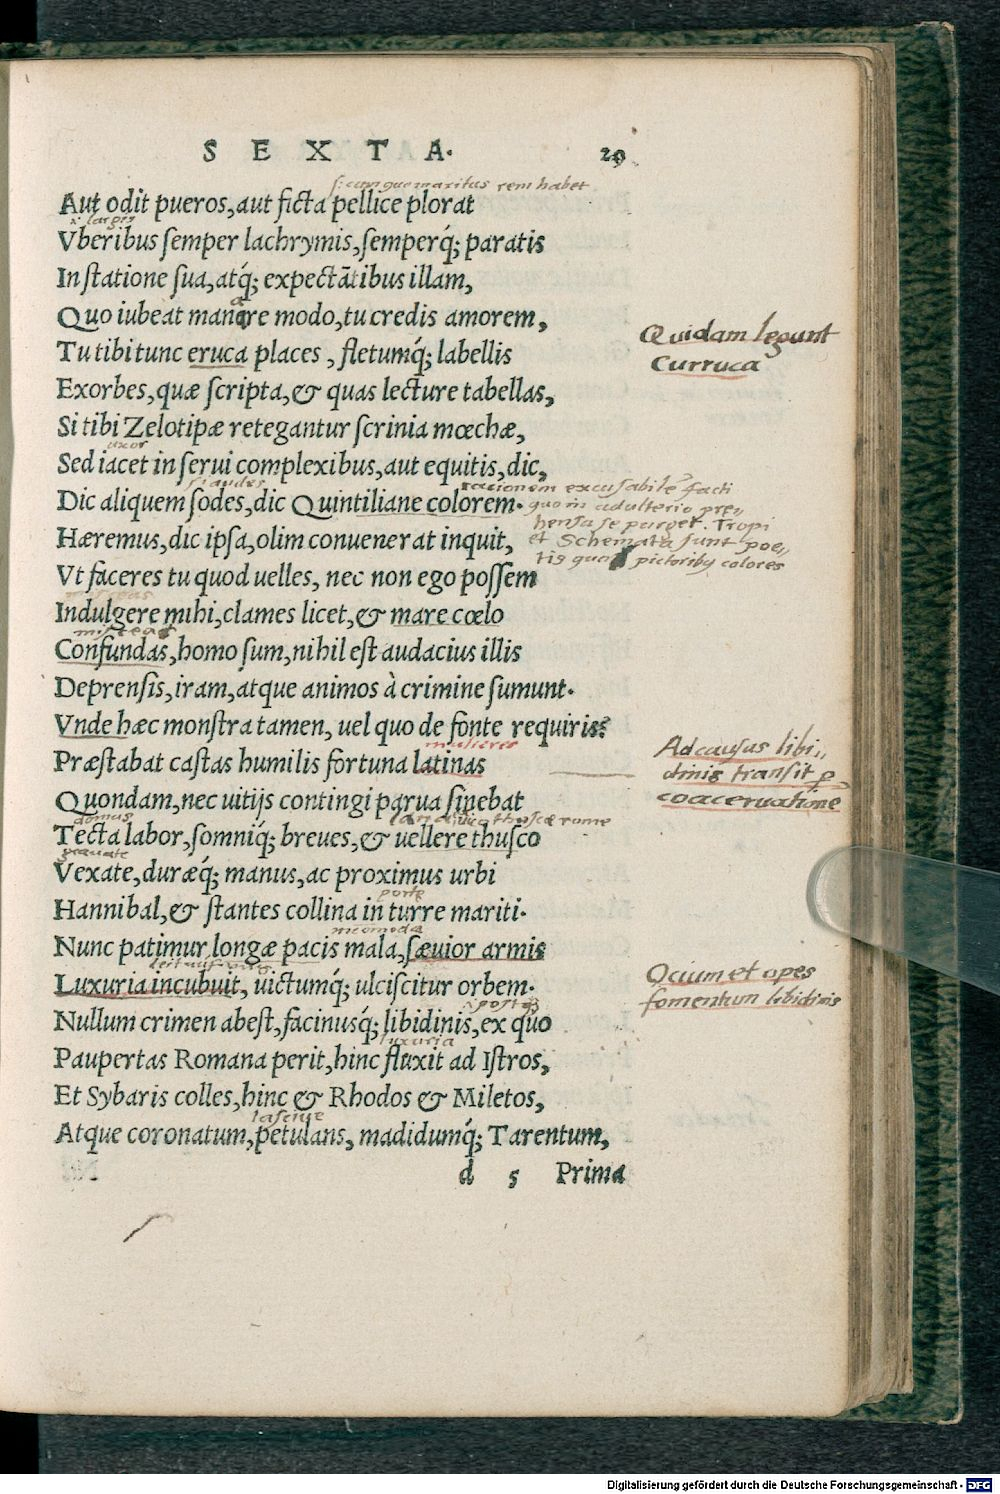 S E X T A. 29
s: cum quo maritus rem habet
Aut odit pueros, aut ficta pellice plorat
larges
Vberibus semper lachrymis, semperq́; paratis
In statione sua, atq́; expectātibus illam,
Quo iubeat manare modo, tu credis amorem,
Quidam legunt
Tu tibi tunc eruca places, fletumq́; labellis
Curruca
Exorbes, quæ scripta, & quas lecture tabellas,
Si tibi Zelotipæ retegantur scrinia mœchæ,
uxor
Sed iacet in serui complexibus, aut equitis, dic,
si audes
rationem excusabilē facti
Dic aliquem sodes, dic Quintiliane colorem.
quom adulterio pre,,
hensa se purget. Tropi
Hæremus, dic ipsa, olim conuenerat inquit,
et Schemata sunt poe,,
tis pictoribꝫ colores
Vt faceres tu quod uelles, nec non ego possem
Indulgere mihi, clames licet, & mare cœlo
misceas
Confundas, homo sum, nihil est audacius illis
Deprensis, iram, atque animos à crimine sumunt.
Vnde hæc monstra tamen, uel quo de fonte requiris?
mulieres
Ad causas libi,,
Præstabat castas humilis fortuna latinas
dinis transit p
coaceruatione
Quondam, nec uitijs contingi parua sinebat
domus
thuscæ rome
Tecta labor, somniq́; breues, & uellere thusco
Vexatæ, duræq́; manus, ac proximus urbi
porte
Hannibal, & stantes collina in turre mariti.
incomoda
Nunc patimur longæ pacis mala, sæuior armis
Ocium et opes
Luxuria incubuit, uictumq́; ulciscitur orbem.
fomentum libidinis
Nullum crimen abest, facinusq́; libidinis, ex quo
luxuria
Paupertas Romana perit, hinc fluxit ad Istros,
Et Sybaris colles, hinc & Rhodos & Miletos,
lasciue
Atque coronatum, petulans, madidumq́; Tarentum,
d 5 Prima
Digitalisierung gefördert durch die Deutsche Forschungsgemeinschaft - DFG